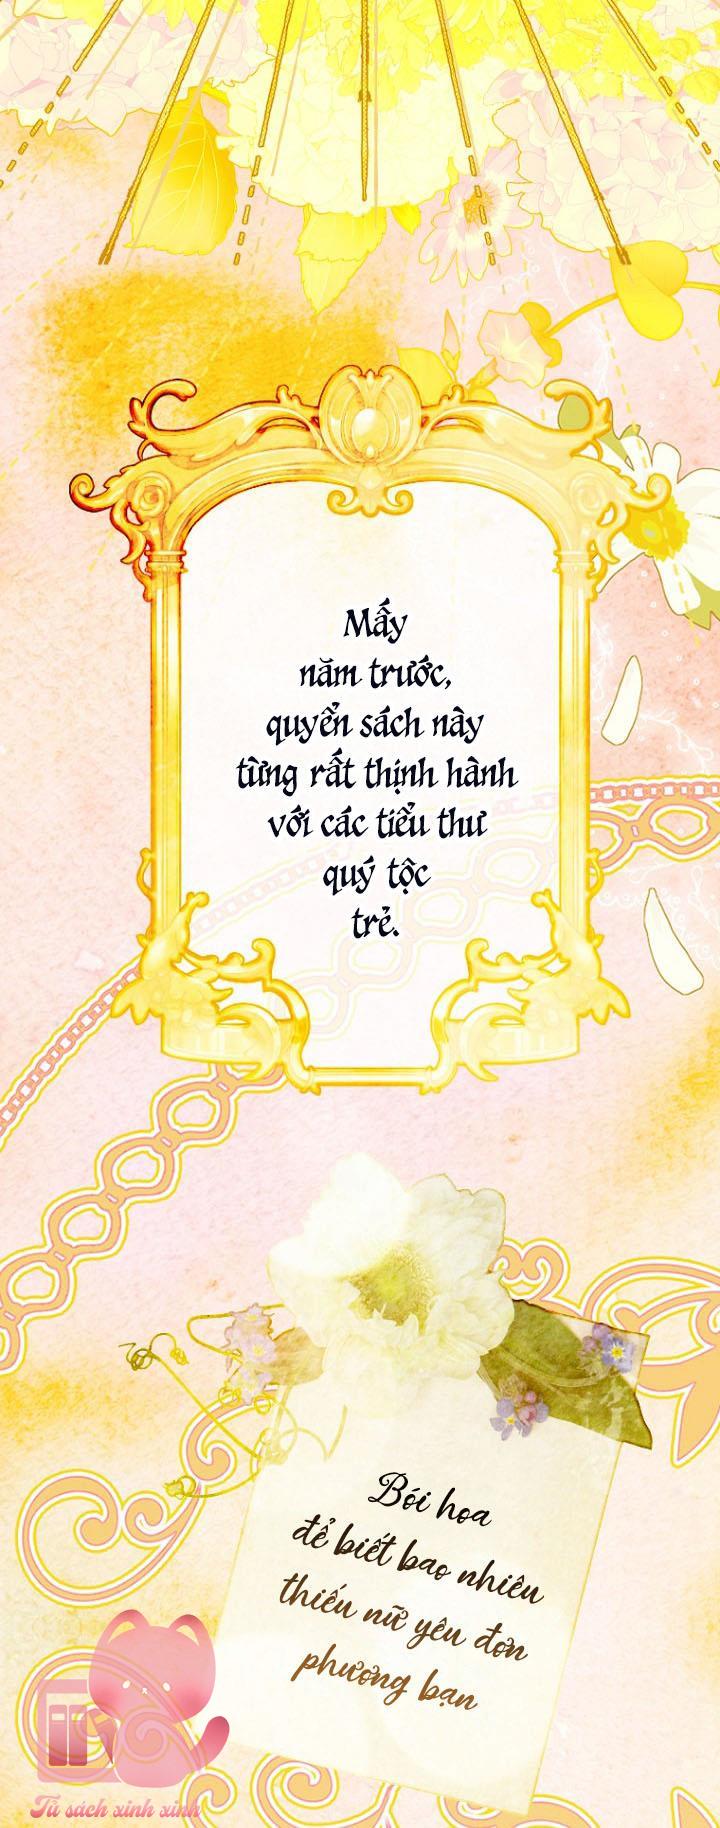 Mấy
năm trước,
quyển sách này
từng rất thịnh hành
với các tiểu thư
quý tộc
trẻ.
Bói hoa
để biết bao nhiêu
thiếu nữ yêu đơn
phương bạn
Tủ sách xinh xinh